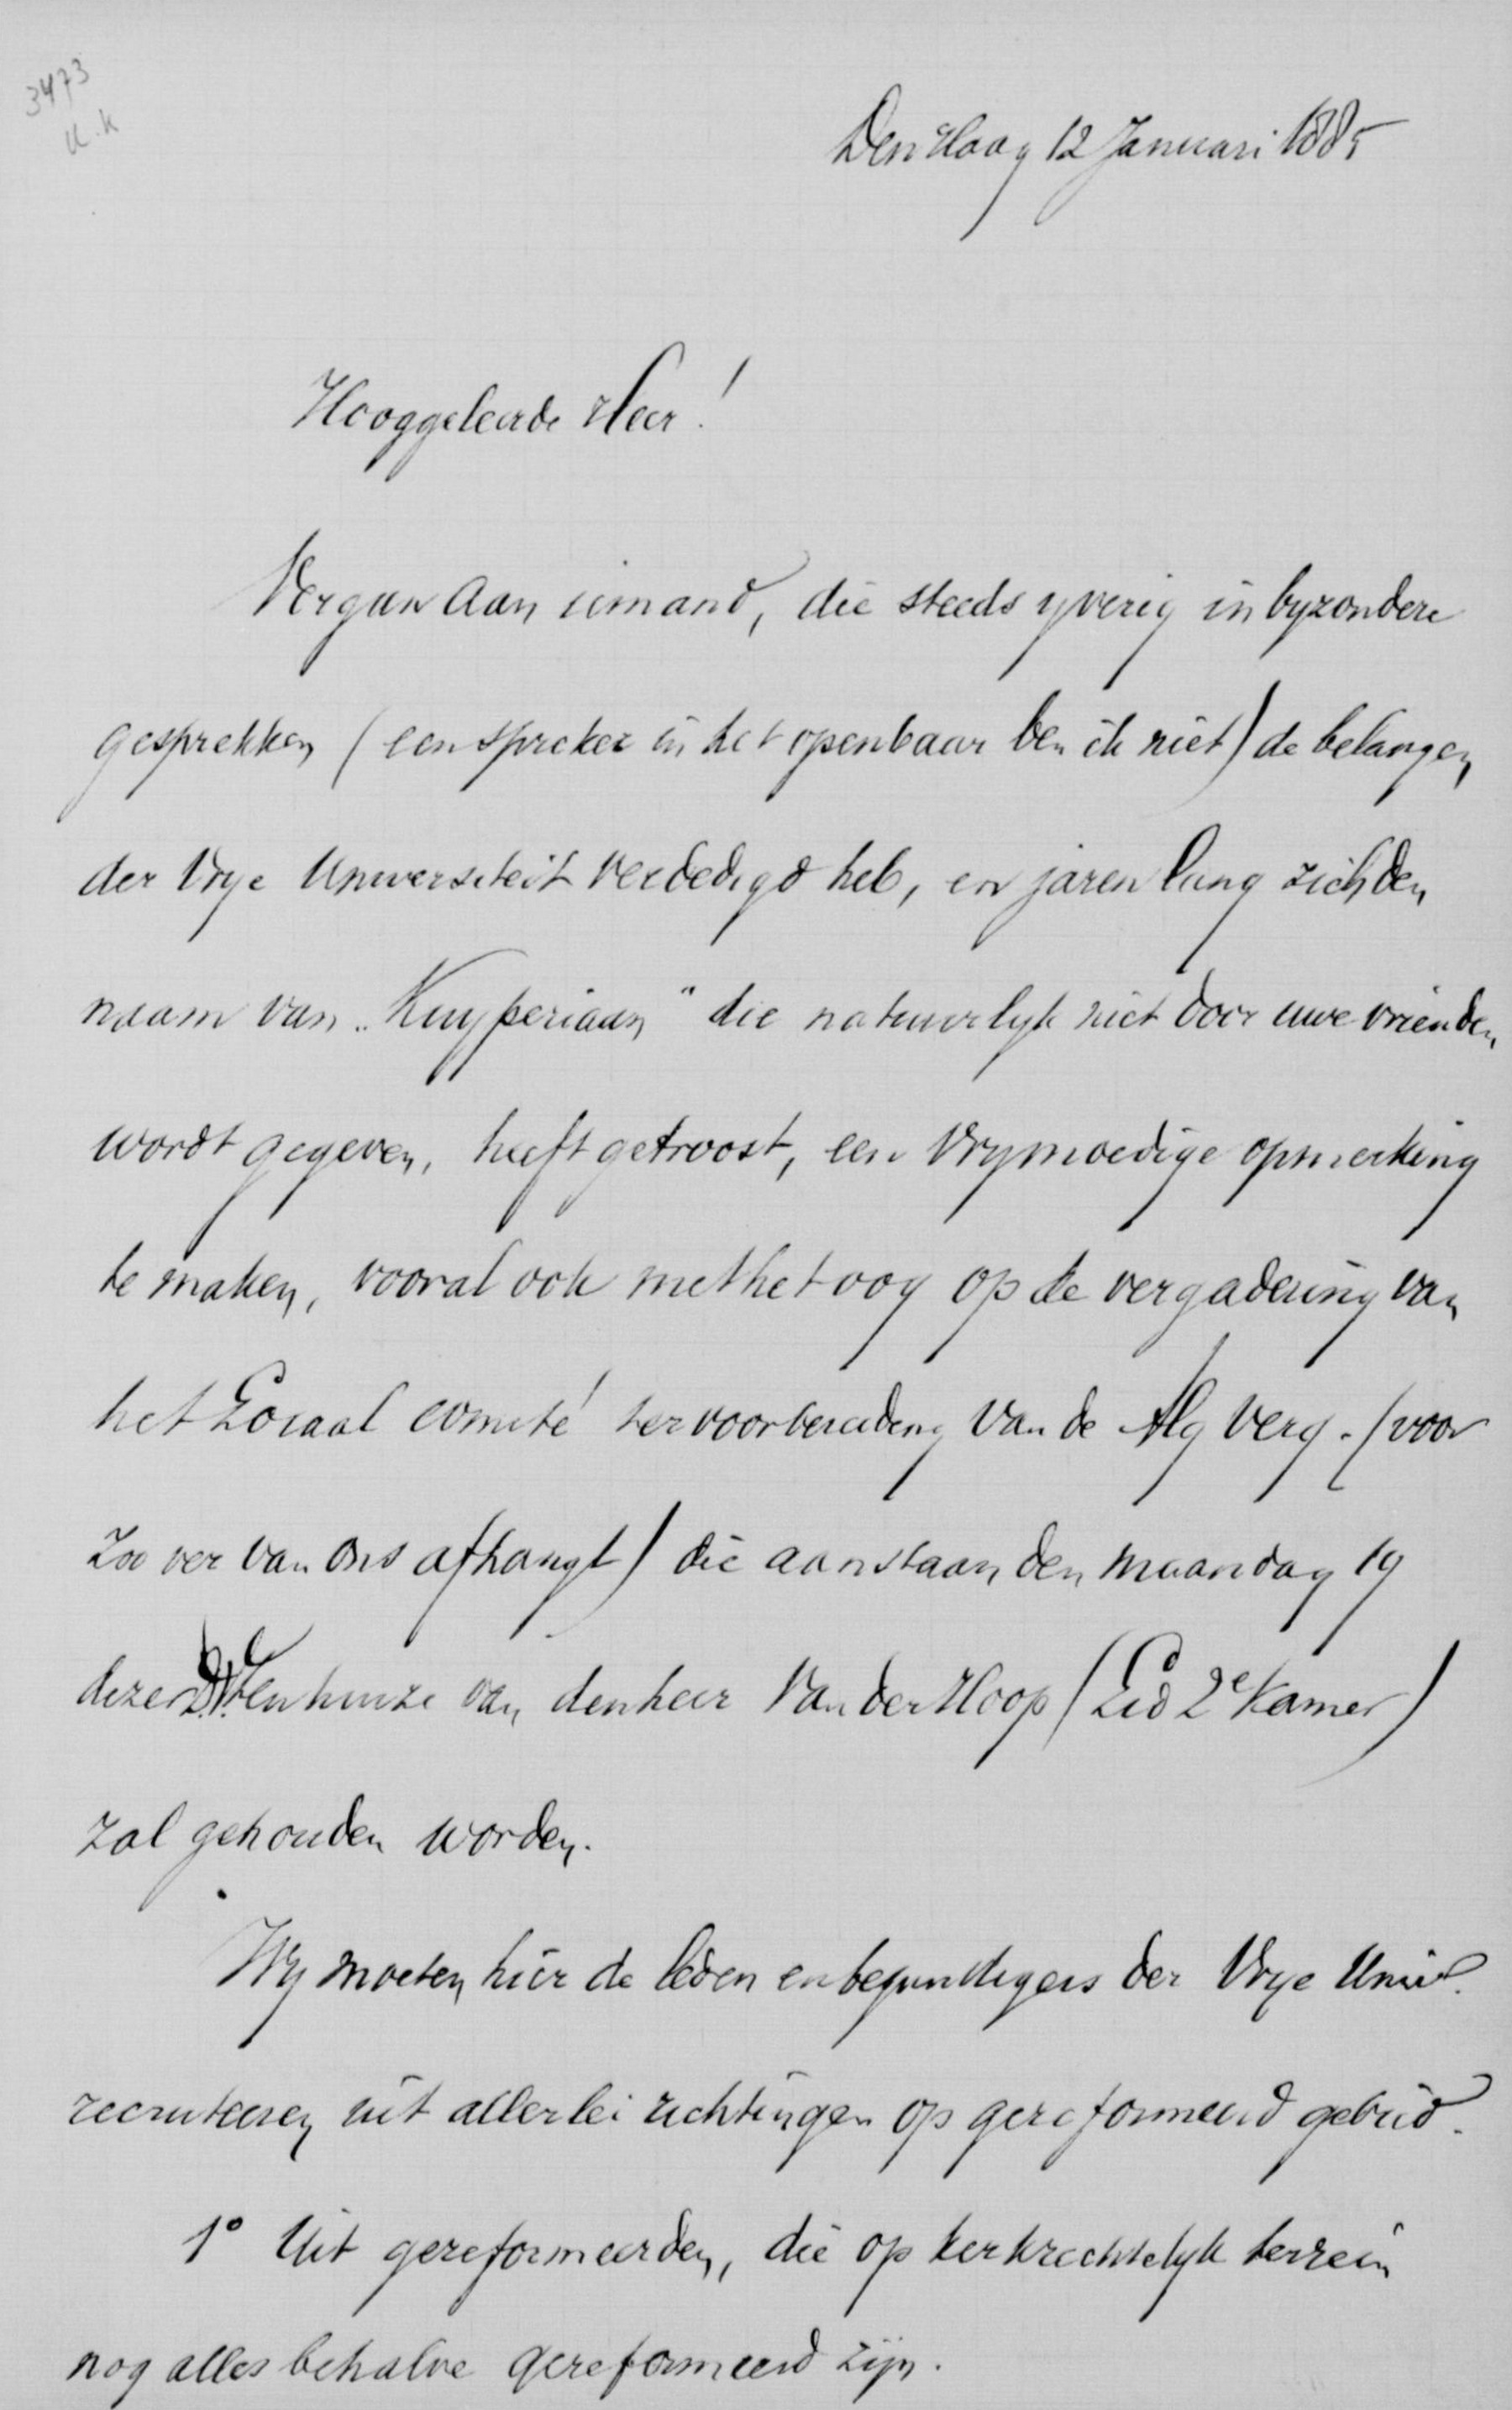 3473
K.K
Den Haag 12 Januari 1885
Hooggeleerde Heer!
Vergun aan iemand, die steeds yverig in byzondere
gesprekken (een spreker in het openbaar ben ik niet) de belangen
der Vrye Universiteit verdedigd heb, en jaren lang zich den
naam van „Kuyperiaan" die natuurlyk niet door uwe vrienden
wordt gegeven, heeft getroost, een vrymoedige opmerking
te maken, vooral ook met het oog op de vergadering van
het Locaal comité ter voorbereiding van de Alg Verg. (voor
zoo ver van ons afhangt) die aanstaanden maandag 19
dezer D.V. ten huize van den heer Van der Hoop (Lid 2e Kamer)
zal gehouden worden.
Wy moeten hier de leden en begunstigers der Vrye Univ.
recruteeren uit allerlei richtingen op gereformeerd gebied.
1° Uit gereformeerden, die op kerkrechtelyk terrein
nog alles behalve gereformeerd zijn.